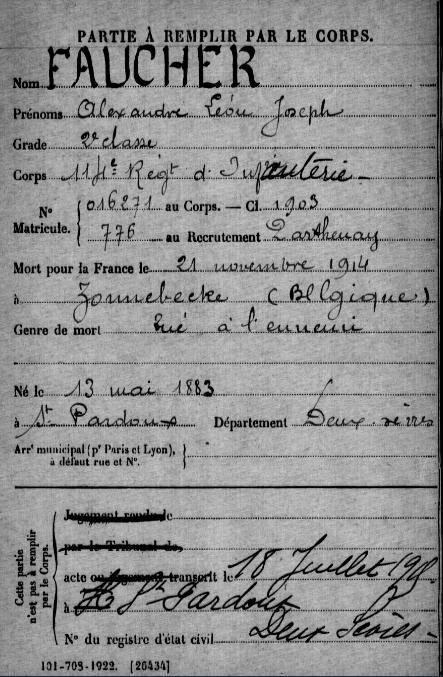 PARTIE À REMPLIR PAR LE CORPS.
Nom FAUCHER
Prénoms Alexandre Léon Joseph
Grade 2e classe
Corps 114e Régt d'Infanterie
N° Matricule. 016271 au Corps. — Cl. 1903
776 au Recrutement Parthenay
Mort pour la France le 21 novembre 1914
à Zonnebecke (BElgique)
Genre de mort Tué à l'ennemi
Né le 13 mai 1883
à St Pardoux Département Deux-sèvres
Arrt municipal (pr Paris et Lyon),
à défaut rue et N°.
Cette partie n'est pas à remplir par le Corps.
Jugement rendu le
par le Tribunal de
acte ou jugement transcrit le 18 Juillet
à St Pardoux
Deux Sèvres
N° du registre d'état civil
101-708-1922. [26434]